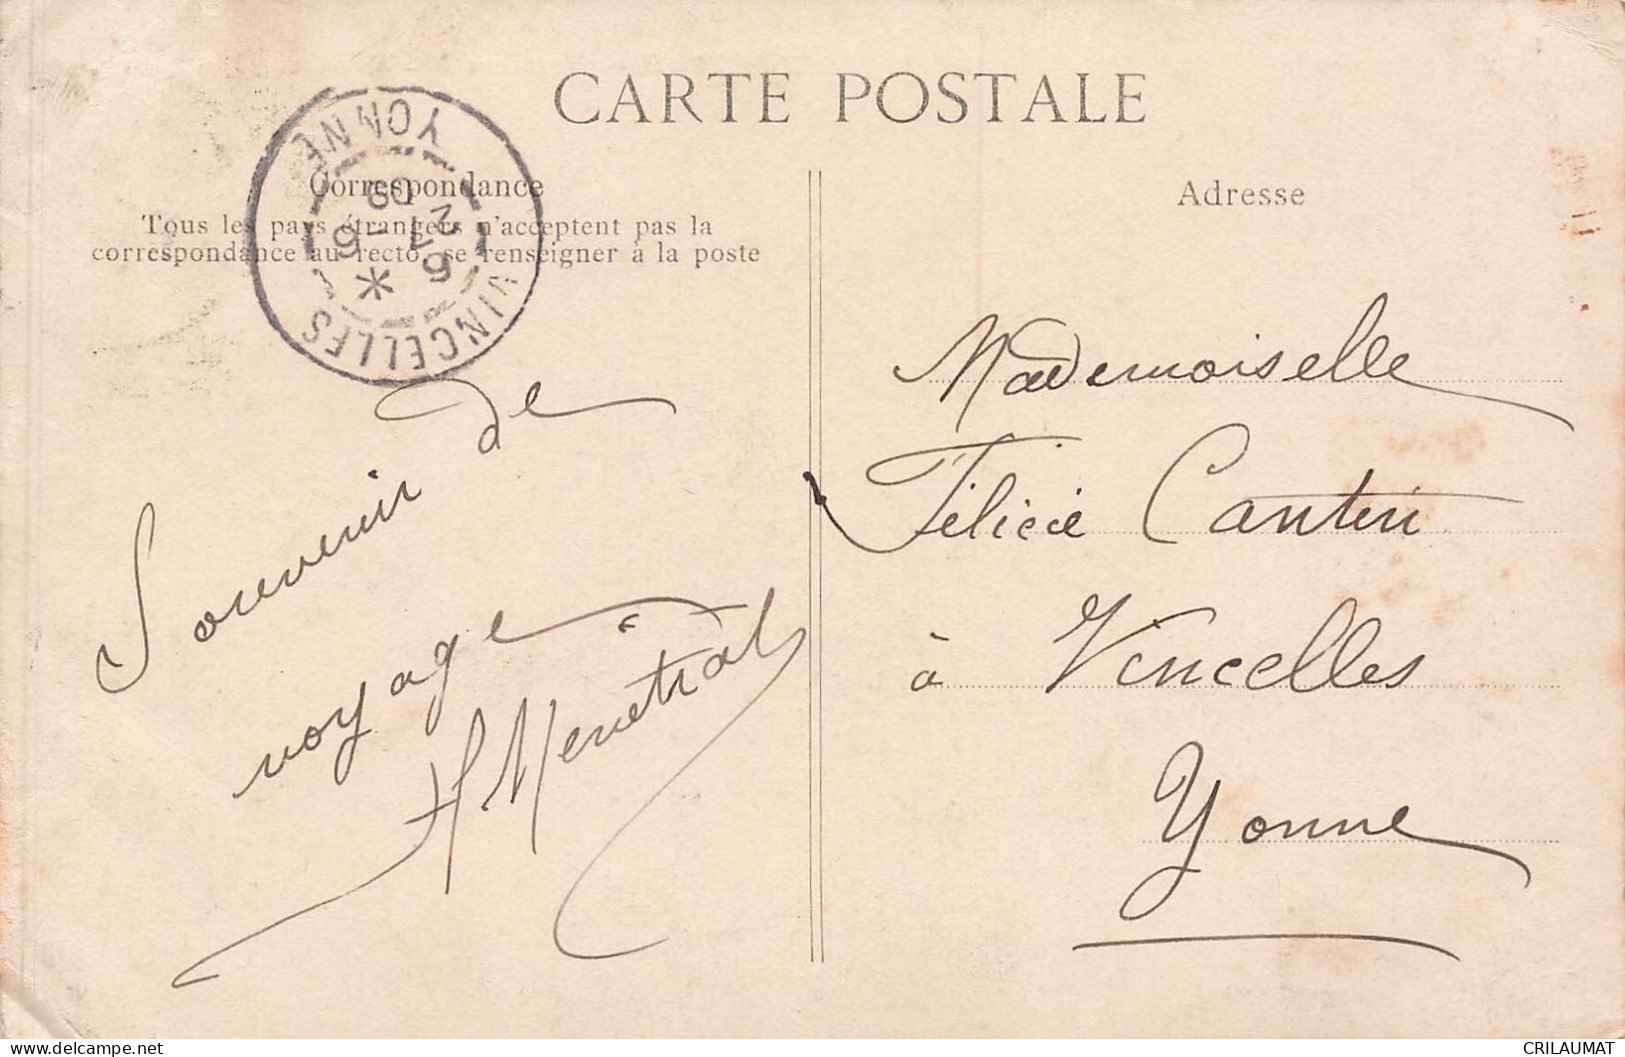 CARTE POSTALE
Correspondance
Tous les pays étrangers n'acceptent pas la
correspondance au recto, se renseigner à la poste
VINCELLES
YONNE
Souvenir de
voyage
H Menétrat
Adresse
Mademoiselle
Félicie Cantin
à Vincelles
Yonne
CRILAUMAT